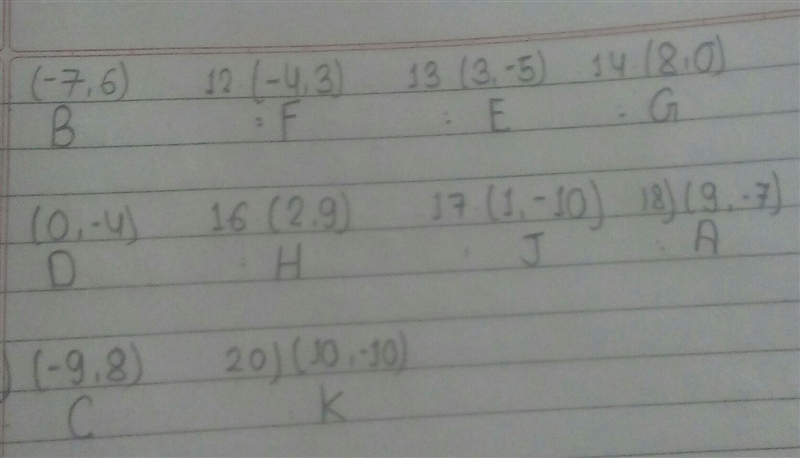 (-7,6) 12. (-4,3) 13 (3,-5) 14 (8,0)
B = F : E - G
(0,-4) 16 (2,9) 17 (1,-10) 18) (9,-7)
D . H . J : A
) (-9,8) 20) (10,-10)
C K